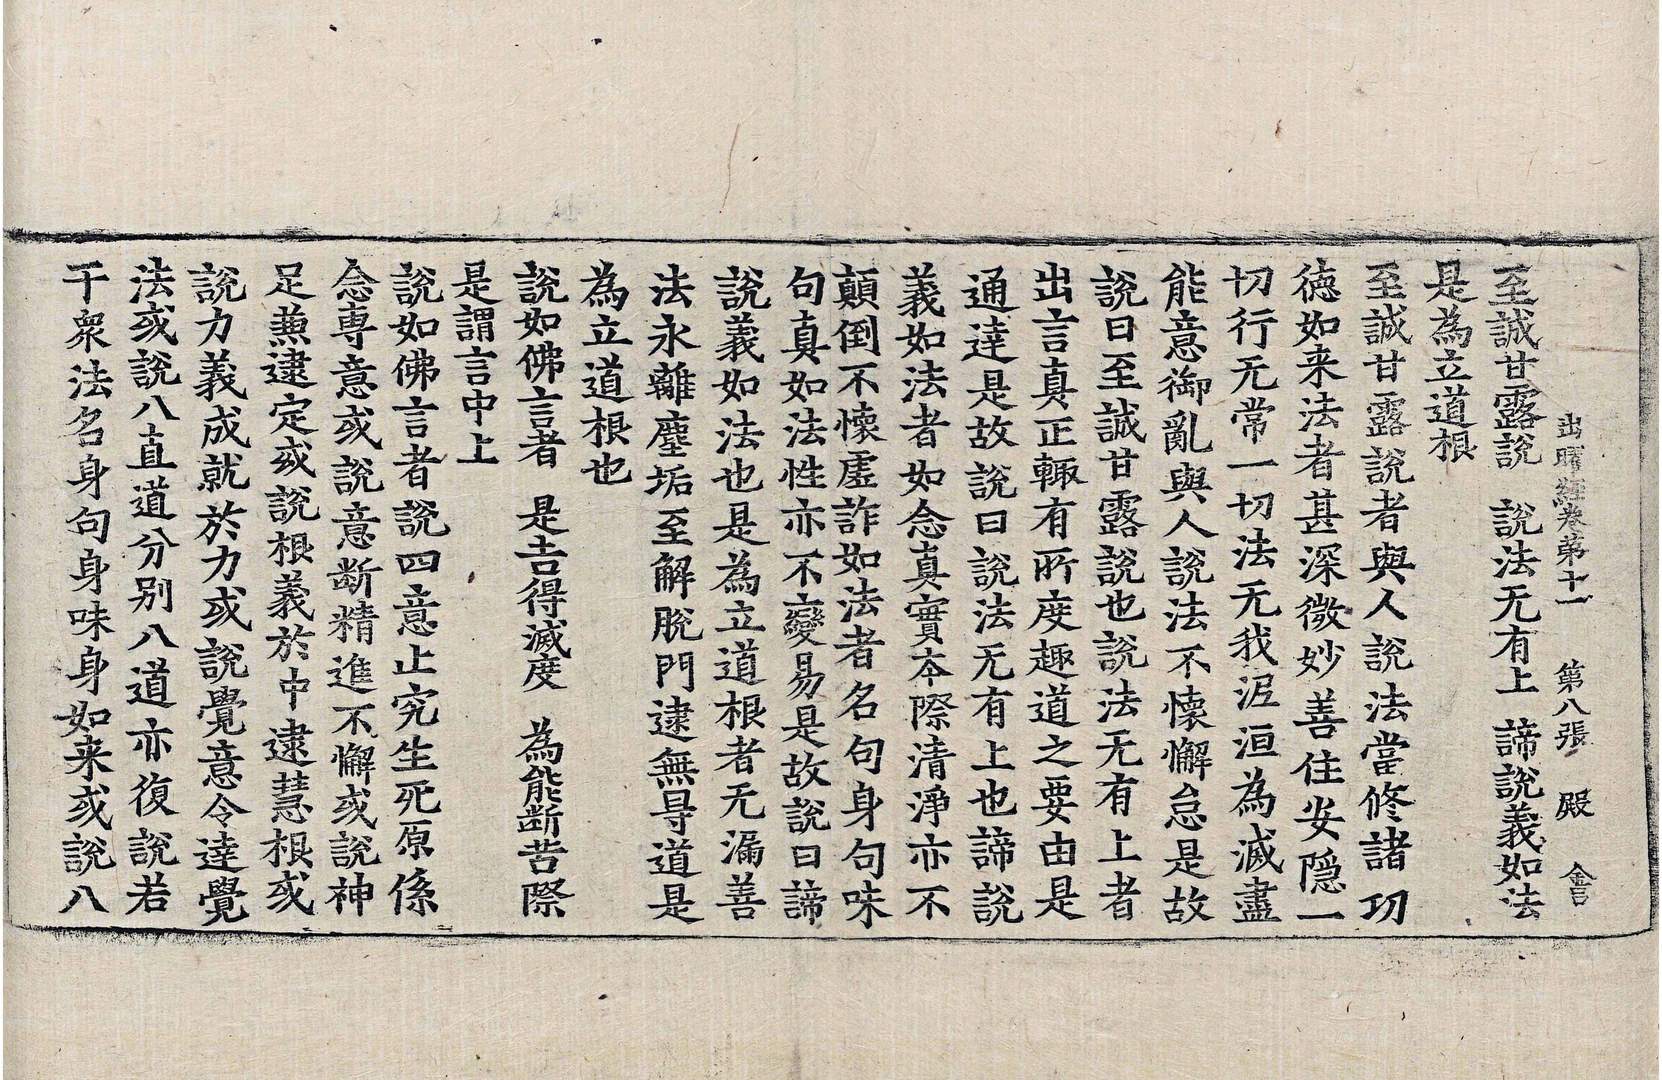 出曜經卷第十一 第八張 殿
至誠甘露說 說法无有上 諦說義如法
是為立道根
至誠甘露說者與人說法當修諸功
德如来法者甚深微妙善住安隐一
切行无常一切法无我泥洹為滅盡
能意御亂與人說法不懷懈怠是故
說曰至誠甘露說也說法无有上者
出言真正輙有所度趣道之要由是
通達是故說曰說法无有上也諦說
義如法者如念真實本際清淨亦不
顛倒不懷虛詐如法者名句身句味
句真如法性亦不變易是故說曰諦
說義如法也是為立道根者无漏善
法永離塵垢至解脫門逮無㝵道是
為立道根也
說如佛言者 是吉得滅度 為能斷苦際
是謂言中上
說如佛言者說四意止究生死原係
念專意或說意斷精進不懈或說神
足兼逮定或說根義於中逮慧根或
說力義成就於力或說覺意令達覺
法或說八直道分别八道亦復說若
干衆法名身句身味身如来或說八